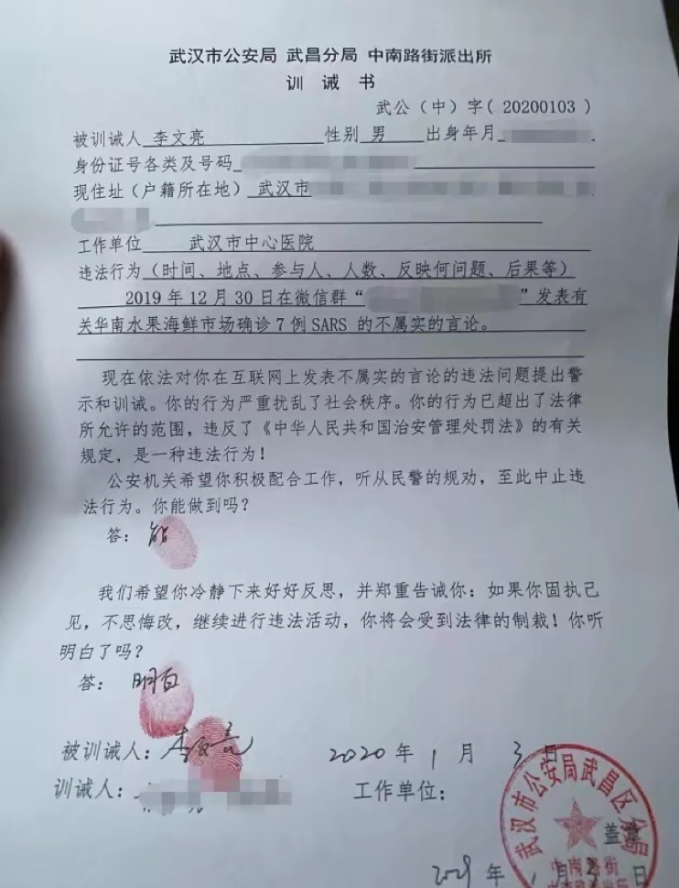 武汉市公安局 武昌分局 中南路街派出所
训 诫 书
武公（中）字( 20200103 )
被训诫人 李文亮 性别 男 出身年月
身份证号各类及号码
现住址（户籍所在地） 武汉市
工作单位 武汉市中心医院
违法行为（时间、地点、参与人、人数、反映何问题、后果等）
2019 年 12 月 30 日在微信群“ ”发表有
关华南水果海鲜市场确诊 7 例 SARS 的不属实的言论。
现在依法对你在互联网上发表不属实的言论的违法问题提出警
示和训诫。你的行为严重扰乱了社会秩序。你的行为已超出了法律
所允许的范围，违反了《中华人民共和国治安管理处罚法》的有关
规定，是一种违法行为！
公安机关希望你积极配合工作，听从民警的规劝，至此中止违
法行为。你能做到吗？
答： 能
我们希望你冷静下来好好反思，并郑重告诫你：如果你固执己
见，不思悔改，继续进行违法活动，你将会受到法律的制裁！你听
明白了吗？
答： 明白
被训诫人：李文亮 2020 年 1 月 3 日
训诫人： 工作单位：
武汉市公安局武昌区分局
盖章
中南路街
年 1 月 3 日